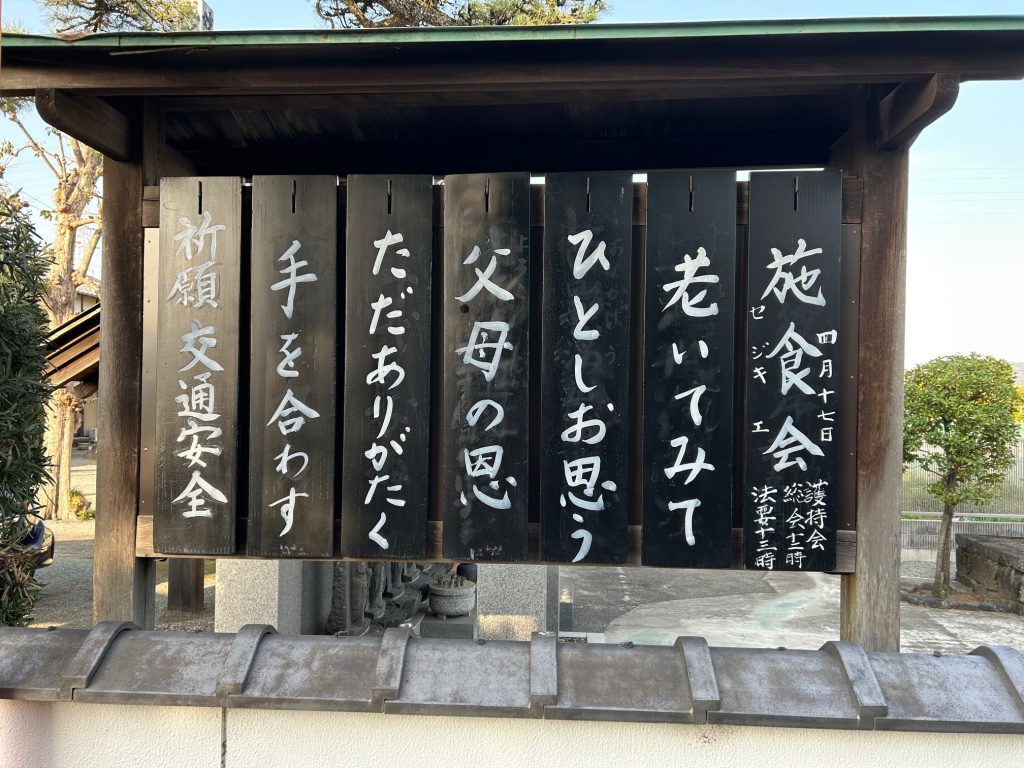 四月十七日
施食会
セジキエ
護持会
総会十二時
法要十三時
老いてみて
ひとしお思う
父母の恩
ただありがたく
手を合わす
祈願 交通安全